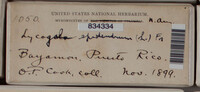 1050.
UNITED STATES NATIONAL HERBARIUM.
834334
Lycogala epidendrum (L.) Fr
Bayamon, Puerto Rico.
O.F. Cook, coll. Nov. 1899.